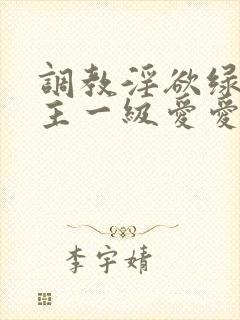 調教淫欲绿
主一級愛愛
李宇婧